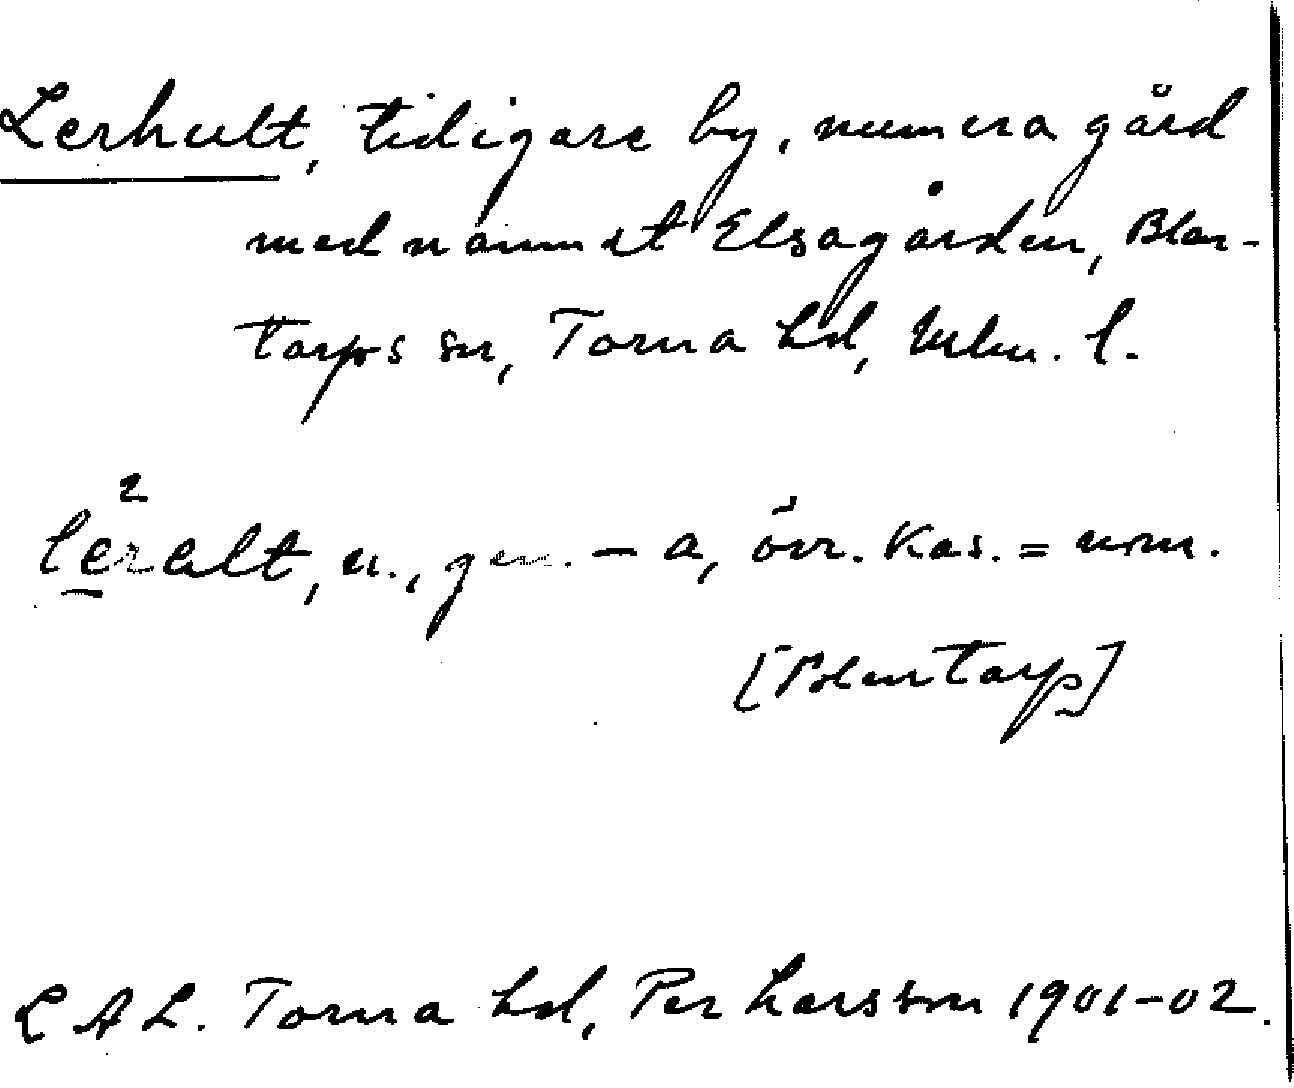 Lerhult, tidigare by, numera gård
med namnet Elsagården, Blen-
tarps sn, Torna hd, Mlm. l.
2
leralt, n., gen. – a, övr. kas. = nom.
[Blentarp]
LAL. Torna hd, Per Larsson 1901-02.